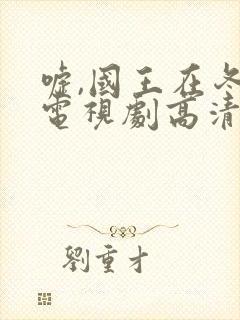 噓,國王在冬
電視劇高清
劉重才